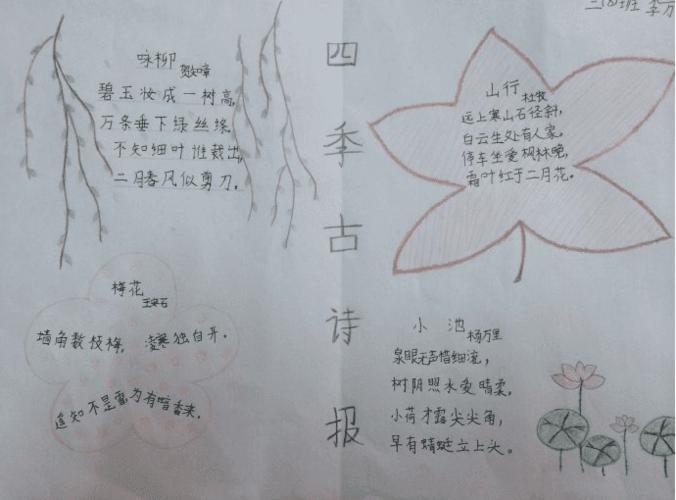 三(3)班 李
咏柳
贺知章
碧玉妆成一树高,
万条垂下绿丝绦。
不知细叶谁裁出,
二月春风似剪刀。
四季古诗报
山行
杜牧
远上寒山石径斜,
白云生处有人家,
停车坐爱枫林晚,
霜叶红于二月花。
梅花
王安石
墙角数枝梅, 凌寒独自开。
遥知不是雪为有暗香来。
小池
杨万里
泉眼无声惜细流,
树阴照水爱晴柔,
小荷才露尖尖角,
早有蜻蜓立上头。